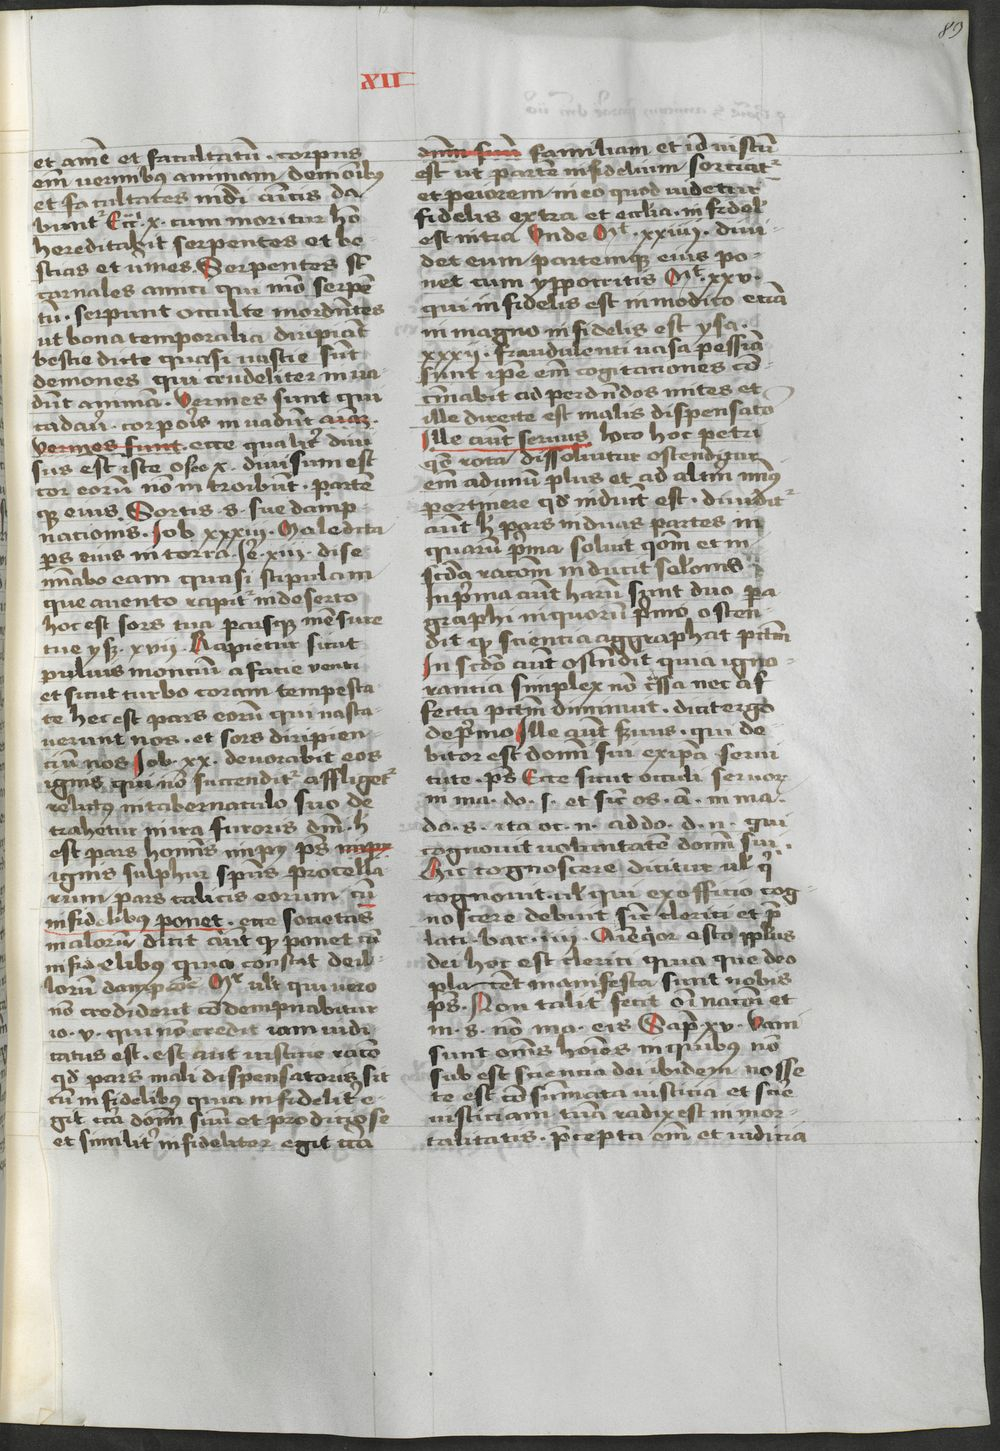 89
XII
et aīe et facultatū . corpus
em̄ vermibꝰ animam demonibꝰ
et facultates mūdi amicis da
bunt᷑ Ecci . x . cum moritur hō
hereditabit serpentes et be
stias et v̄mes . Serpentes sūt
carnales amici qui mō serpē
tū . serpunt occulte mordn̄tes
ut bona temporalia diripiāt
bestie dicte quasi vastie sūt
demones qui crudeliter in va
dūt animā . Vermes sunt qui
cadau᷑ . corpoīs in vadūt
vermes sunt . ecce qualit᷑ diui
sus est iste osee x . diuisum est
cor eorū nō in troibūt . partē
qꝫ eius Sortis . s . sue damp
nacionis . Iob xxxiii . Maledicta
ps eius in terra . Je . xiii . dise
mīabo eam quasi stipulam
que a vento rapit᷑ in deserto
hoc est sors tua parsqꝫ mēsure
tue ysꝫ . xvii . Rapietur sicut
puluis monciū a facie venti
et sicut turbo coram tempesta
te hec est pars eorū qui vasta
uerunt nos . et sors diripien
ciū nos Iob . xx . deuorabit eos
ignis qui nō succendit᷑ affliget᷑
relictus in tabernaculo suo de
trahetur in ira furoris dn̄i . h
est pars homīs impij ps impij
ignis sulphur spūs procella
rum pars calicis eorum cū
infidelibꝰ ponet . ecce societas
malorū dicit aūt qꝫ ponet cū
infidelibꝰ quia constat de il
lorū dampcōe Mt᷑ ult qui vero
nō crediderit cōdempnabitur
io . v . qui nō credit iam iudi
catus est . est aūt iusticie racō
qd̄ pars mali dispensatoris sit
cū infidelibꝰ quia infidelit᷑ e
git cū dōm suū et prodigose
et similit᷑ infideliter egit cū
dn̄m suū familiam et iō iustū
est ut partē infidelium sorciat᷑
et peiorem in eo quod videtur
fidelis extra et ecclia . infidel᷑
est intra Vnde Mt᷑ . xxiiij . diui
det eum partemqꝫ eius po
net cum ypocritis Mt᷑ . xxv .
qui infidelis est in modico eciā
in magno infidelis est ysa .
xxxij . fraudulenti vasa pessīa
sunt ipe em̄ cogitaciones cō
cīnabit ad perdn̄dos mites et
ille directe est malis dispensatō
Ille aūt seruus hoco hoc petri
qō rota dissoluitur ostenditur
em̄ ad unū plus et ad altm̄ imꝰ
pertinere qd̄ induūt est . diuidit᷑
aūt h̄ pars in duas partes in
quarū p̄ma soluit qōm et in
scd̄a racōm inducit salōnis
In p̄ma aūt harū sunt duo pa
graphi in quorū p̄mo osten
dit qꝫ sciencia aggrauat pctm̄
In scd̄o aūt ostēdit quia igno
rancia simplex nō crassa nec af
fecta pctm̄ diminuit . dicit ergo
de p̄mo Ille aūt s̄uus . qui de
bitor est domī sui ex ip̄a serui
tute . ps Ecce sicut occuli seruoꝝ
in ma . do . s . et sic̄ os . a . in ma .
do . s . ita oc . n . ad do . d . n . qui
cognouit voluntatē domī sui .
Hic cognoscere dicitur ul᷑ qī
cognouit . ul᷑ qui ex officio cog
noscere debunt sic̄ clerici et p̄
lati . bar . iiij . Aīeqōr esto pplus
dei hoc est clerici quia que deo
placēt manifesta sunt nobis
ps . Non talit᷑ fecit oī nacōī et
in . s . nō ma . eis Sap̄ . xv . Vani
sunt omīs hoīes in quibꝰ nō
sub est sciencia dei ibidem nosse
te est cō summata iusticia et scīe
iusticiam tuā radix est in mor
talitatis . p̄cepta em̄ et iudicia